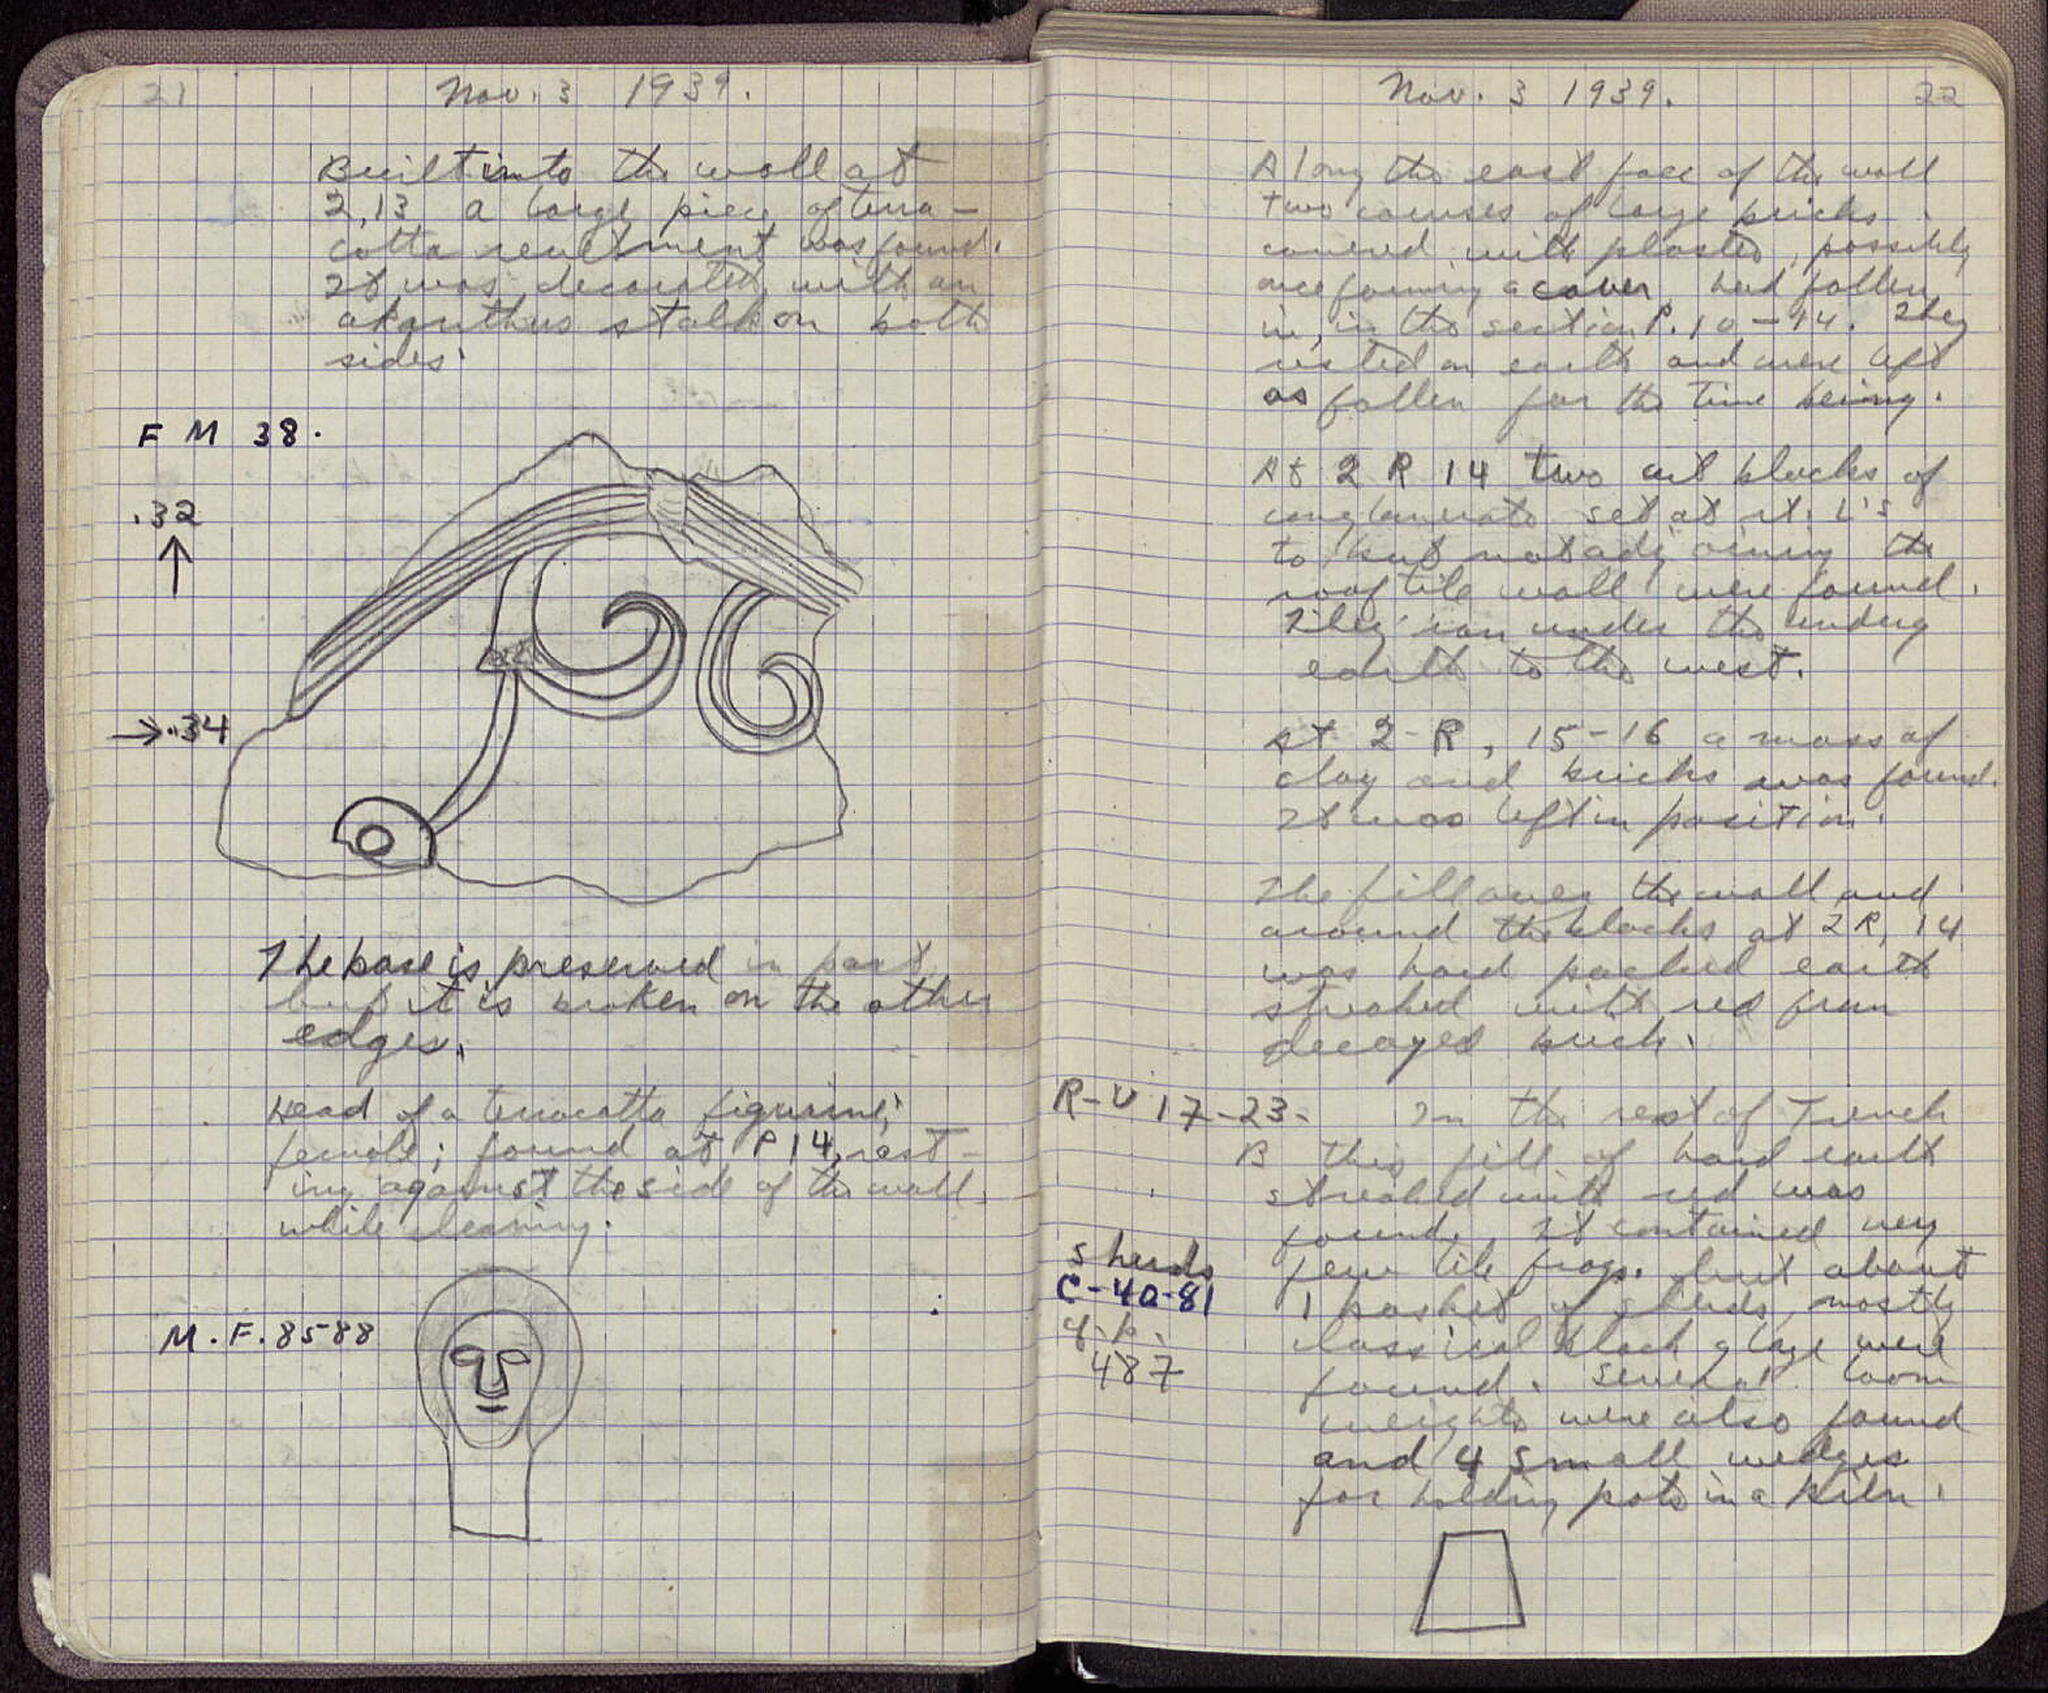 21
Nov. 3 1939.
Built into the wall at
2,13 a large piece of terra-
cotta revetment was found.
It was decorated with an
akanthus stalk on both
sides.
F M 38.
.32
.34
The base is preserved in part
but it is broken on the other
edges.
Head of a terracotta figurine;
female; found at P14, rest-
ing against the side of the wall,
while cleaning.
M.F. 8588
Nov. 3 1939.
22
Along the east face of the wall
two courses of large bricks
covered with plaster, possibly
once forming a cover had fallen
in, in the section P. 10-14. They
rested on earth and were left
as fallen for the time being.
At 2 R 14 two cut blocks of
conglomerate set at rt. L's
to but not adjoining the
roof tile wall were found.
They ran under the
earth to the west.
At 2-R, 15-16 a mass of
clay and bricks was found.
It was left in position.
The fill over the wall and
around the blocks at 2R, 14
was hard packed earth
streaked with red from
decayed brick.
R-U 17-23- In the rest of Trench
B this fill of hard earth
streaked with red was
found. It contained very
few tile frags. but about
1 basket of sherds, mostly
classical black glaze were
found. Several loom
weights were also found
and 4 small wedges
for holding pots in a kiln.
sherds
C-40-81
cf. p.
487